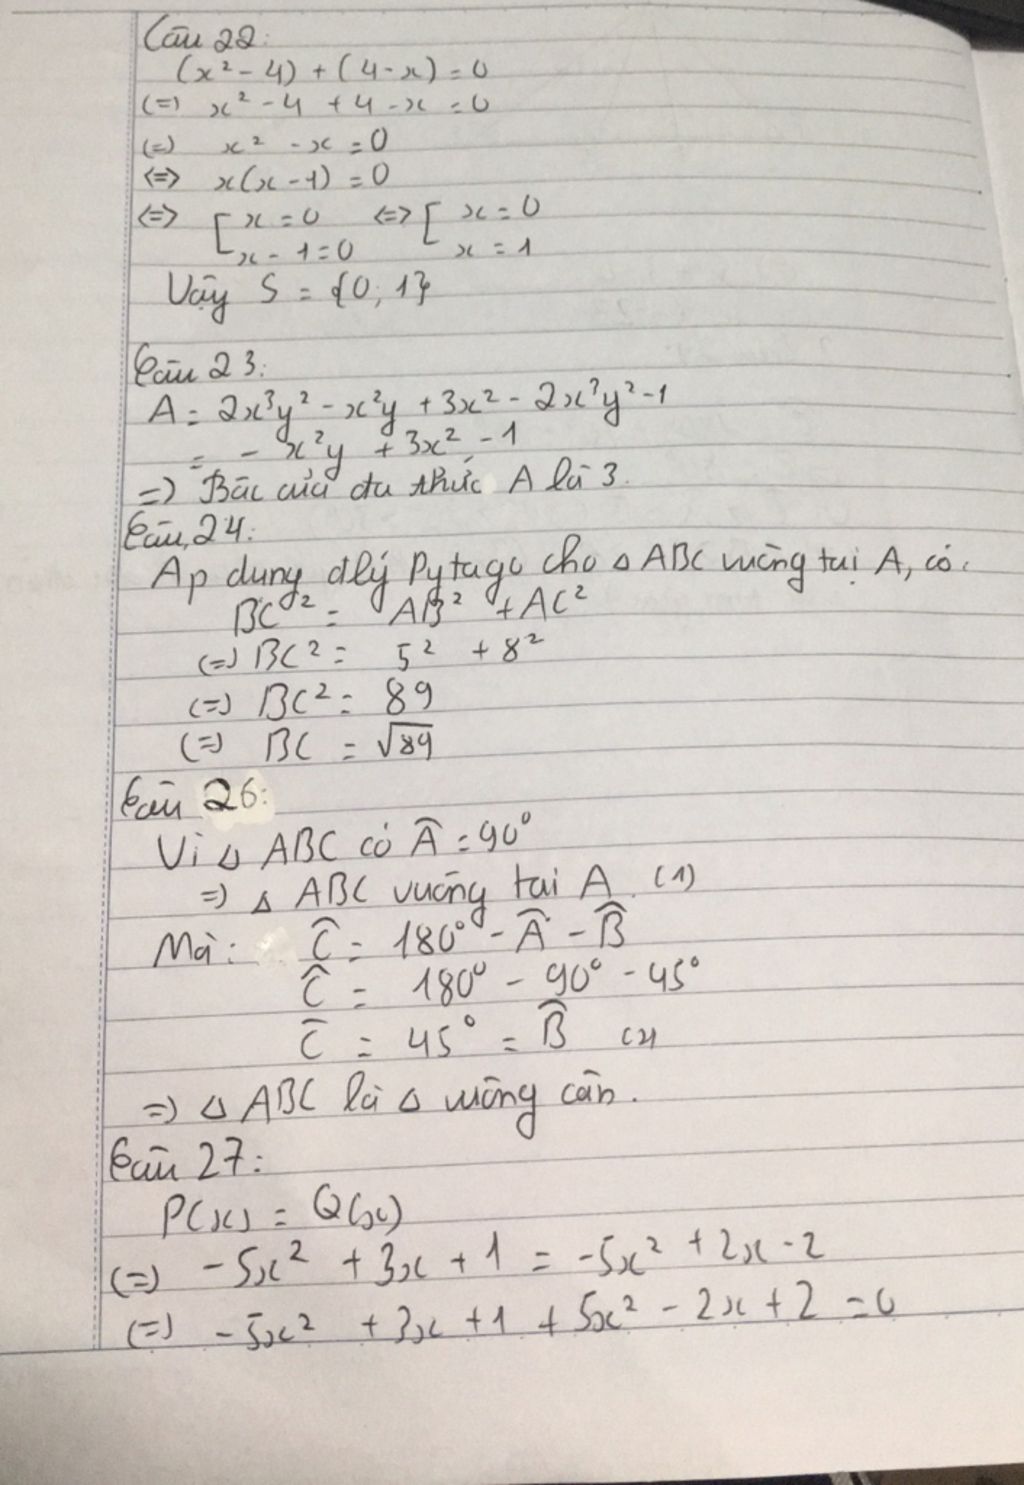 Câu 22:
(x² - 4) + (4 - x) = 0
(=) x² - 4 + 4 - x = 0
(=) x² - x = 0
<=> x(x - 1) = 0
<=> [ x = 0 <=> [ x = 0
x - 1 = 0 x = 1
Vậy S = {0; 1}
Câu 23:
A = 2x³y² - x²y + 3x² - 2x³y² - 1
= - x²y + 3x² - 1
=) Bậc của đa thức A là 3.
Câu 24:
Áp dụng đlý Pytago cho Δ ABC vuông tại A, có:
BC² = AB² + AC²
(=) BC² = 5² + 8²
(=) BC² = 89
(=) BC = √89
Câu 26:
Vì Δ ABC có Â = 90°
=) Δ ABC vuông tại A. (1)
Mà: Ĉ = 180° - Â - B̂
Ĉ = 180° - 90° - 45°
Ĉ = 45° = B̂ (2)
=) Δ ABC là Δ vuông cân.
Câu 27:
P(x) = Q(x)
(=) -5x² + 3x + 1 = -5x² + 2x - 2
(=) -5x² + 3x + 1 + 5x² - 2x + 2 = 0